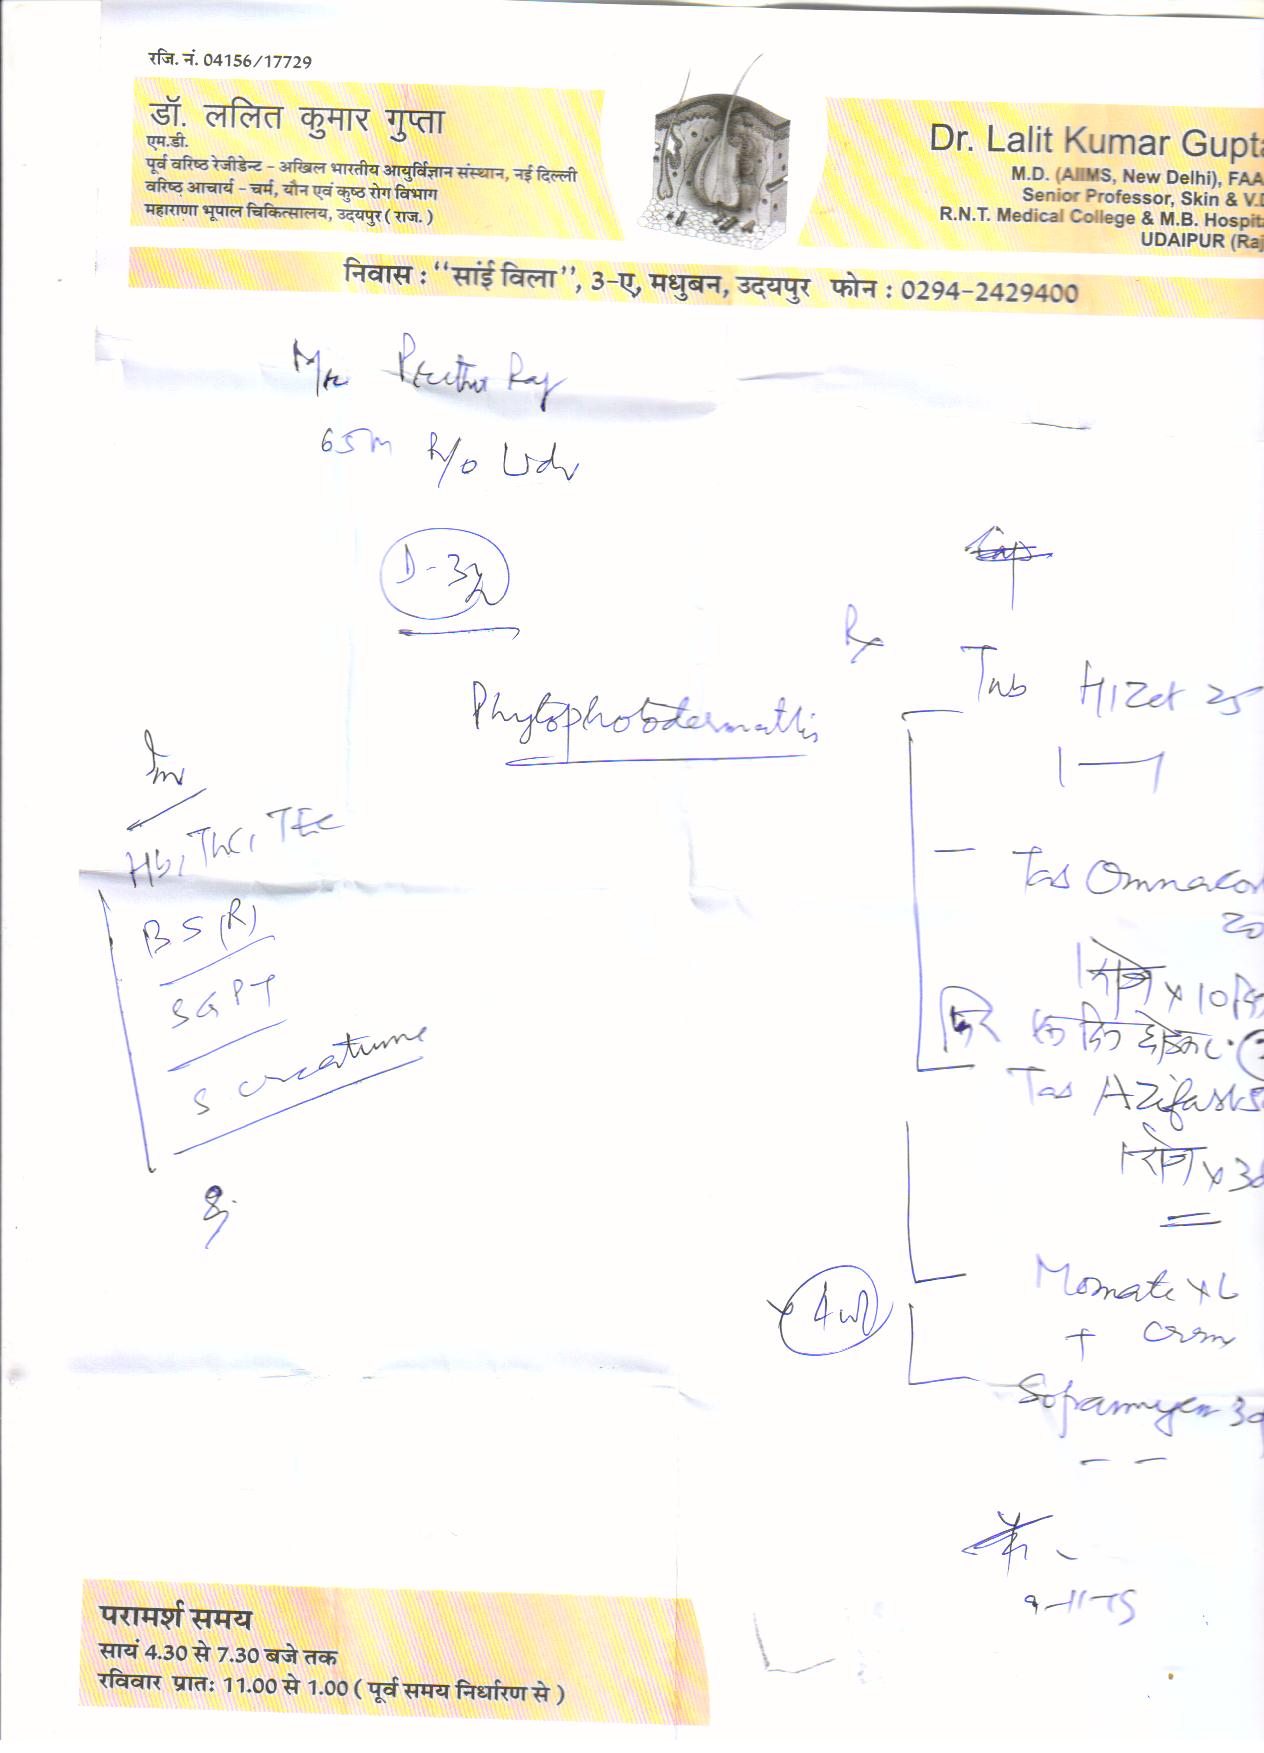 रजि. नं. 04156/17729
डॉ. ललित कुमार गुप्ता
एम.डी.
पूर्व वरिष्ठ रेजीडेन्ट - अखिल भारतीय आयुर्विज्ञान संस्थान, नई दिल्ली
वरिष्ठ आचार्य - चर्म, यौन एवं कुष्ठ रोग विभाग
महाराणा भूपाल चिकित्सालय, उदयपुर ( राज. )
Dr. Lalit Kumar Gupta
M.D. (AIIMS, New Delhi), FAA
Senior Professor, Skin & V.D
R.N.T. Medical College & M.B. Hospita
UDAIPUR (Raj
निवास : "सांई विला", 3-ए, मधुबन, उदयपुर फोन : 0294-2429400
Raj
65m R/o Udr
D-3
Rx
Phytophotodermatitis
Tab HIZet 25
Hb, TLC, TEC
BS (R)
SGPT
S creatinine
Tab Omnacor
20
x 10
फिर एक दिन छोड़कर
Tab Azifast 5
x 3
Momate XL
+ Crm
x 4
Soframycin
परामर्श समय
सायं 4.30 से 7.30 बजे तक
रविवार प्रातः 11.00 से 1.00 ( पूर्व समय निर्धारण से )